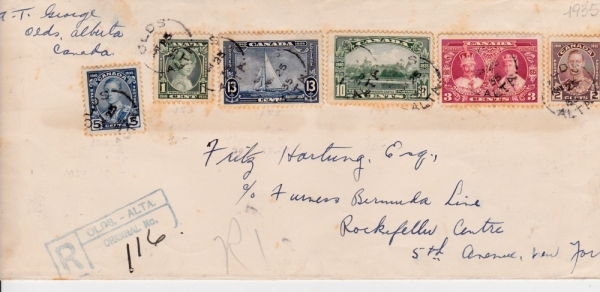 A. T. George
Olds, Alberta
Canada.
1935
CANADA
5 CENTS 5
CANADA
1 CENT 1
CANADA
13 CENTS 13
CANADA
10 CENTS 10
CANADA
3 CENTS 3
CANADA
2 CENTS
OLDS
ALTA.
Fritz Hartung, Esq.,
c/o Furness Bermuda Line
Rockefeller Centre
5th Avenue, New Yor
R
OLDS - ALTA.
ORIGINAL No.
116.
R1